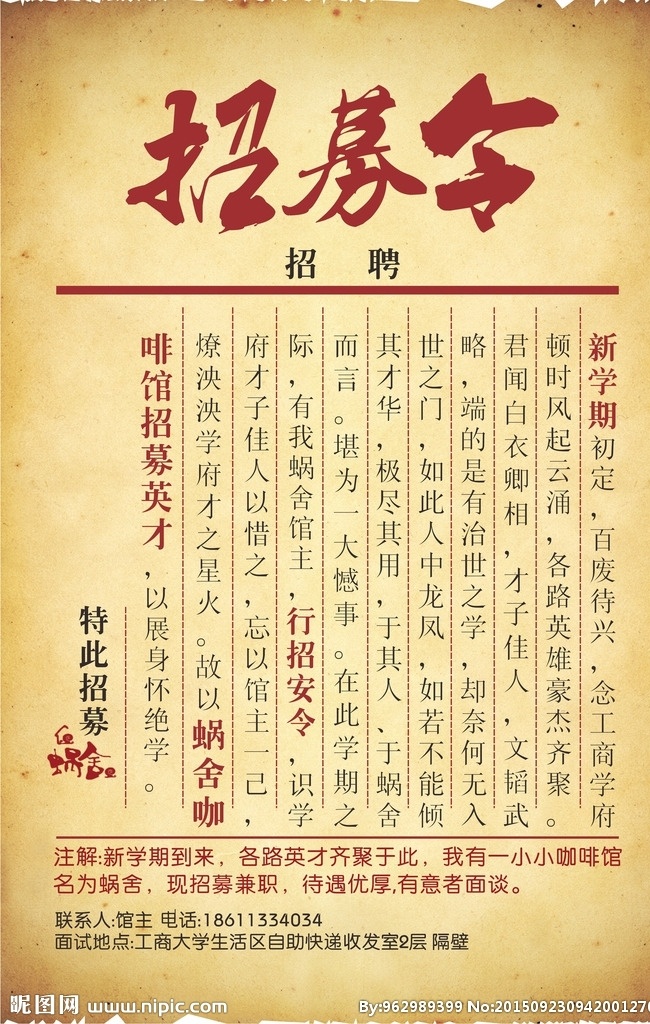 招募令
招 聘
新学期初定，百废待兴，念工商学府
顿时风起云涌，各路英雄豪杰齐聚。
君闻白衣卿相，才子佳人，文韬武
略，端的是有治世之学，却奈何无入
世之门，如此人中龙凤，如若不能倾
其才华，极尽其用，于其人、于蜗舍
而言。堪为一大憾事。在此学期之
际，有我蜗舍馆主，行招安令，识学
府才子佳人以惜之，忘以馆主一己，
燎泱泱学府才之星火。故以蜗舍咖
啡馆招募英才，以展身怀绝学。
特此招募
蜗舍
注解:新学期到来，各路英才齐聚于此，我有一小小咖啡馆
名为蜗舍，现招募兼职，待遇优厚,有意者面谈。
联系人:馆主 电话:18611334034
面试地点:工商大学生活区自助快递收发室2层 隔壁
昵图网 www.nipic.com
By:962989399 No:20150923094200127